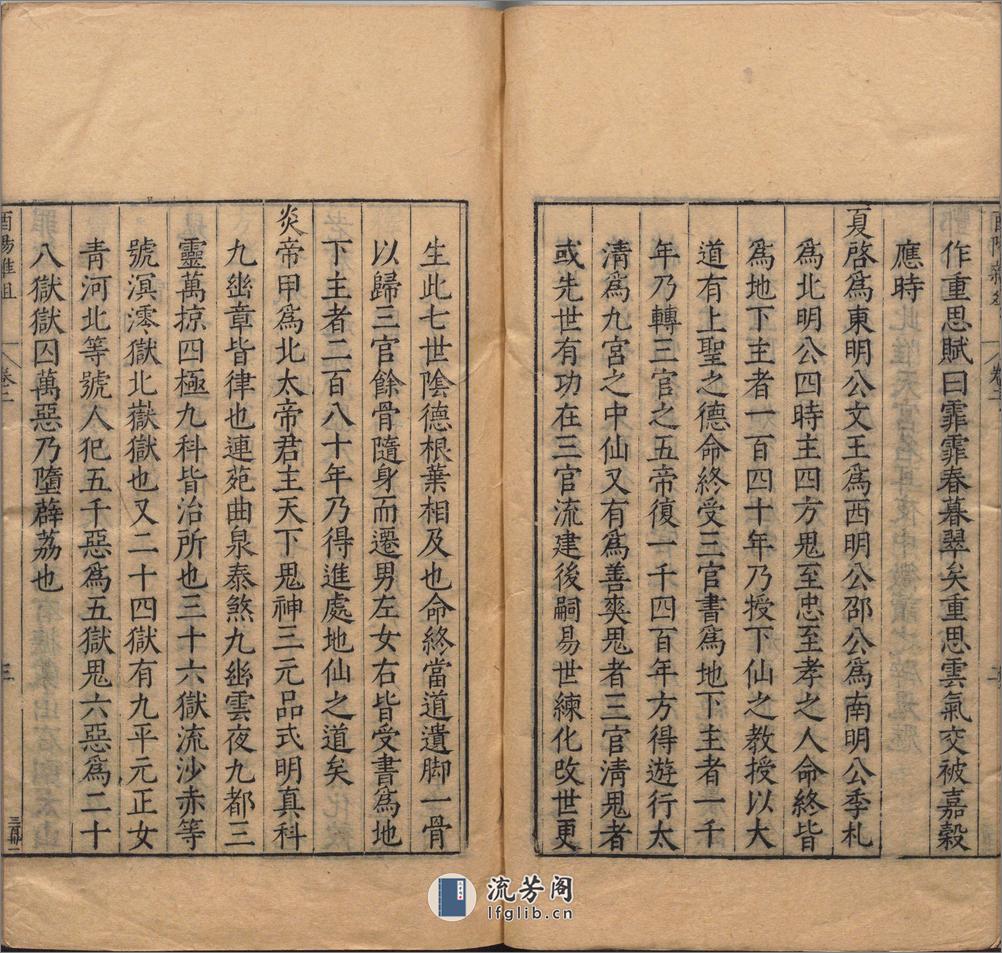 作重思賦曰霏霏春暮翠矣重思雲氣交被嘉穀
應時
夏啓爲東明公文王爲西明公邵公爲南明公季札
爲北明公四時主四方鬼至忠至孝之人命終皆
爲地下主者一百四十年乃授下仙之教授以大
道有上聖之德命終受三官書爲地下主者一千
年乃轉三官之五帝復一千四百年方得遊行太
清爲九宮之中仙又有爲善爽鬼者三官清鬼者
或先世有功在三官流逮後嗣易世練化改世更
生此七世陰德根葉相及也命終當道遺脚一骨
以歸三官餘骨隨身而遷男左女右皆受書爲地
下主者二百八十年乃得進處地仙之道矣
炎帝甲爲北太帝君主天下鬼神三元品式明真科
九幽章皆律也連苑曲泉泰煞九幽雲夜九都三
靈萬掠四極九科皆治所也三十六獄流沙赤等
號溟澪獄北嶽獄也又二十四獄有九平元正女
青河北等號人犯五千惡爲五獄鬼六惡爲二十
八獄獄囚萬惡乃墮薜荔也
酉陽雜俎
卷二
三
流芳阁
lfglib.cn